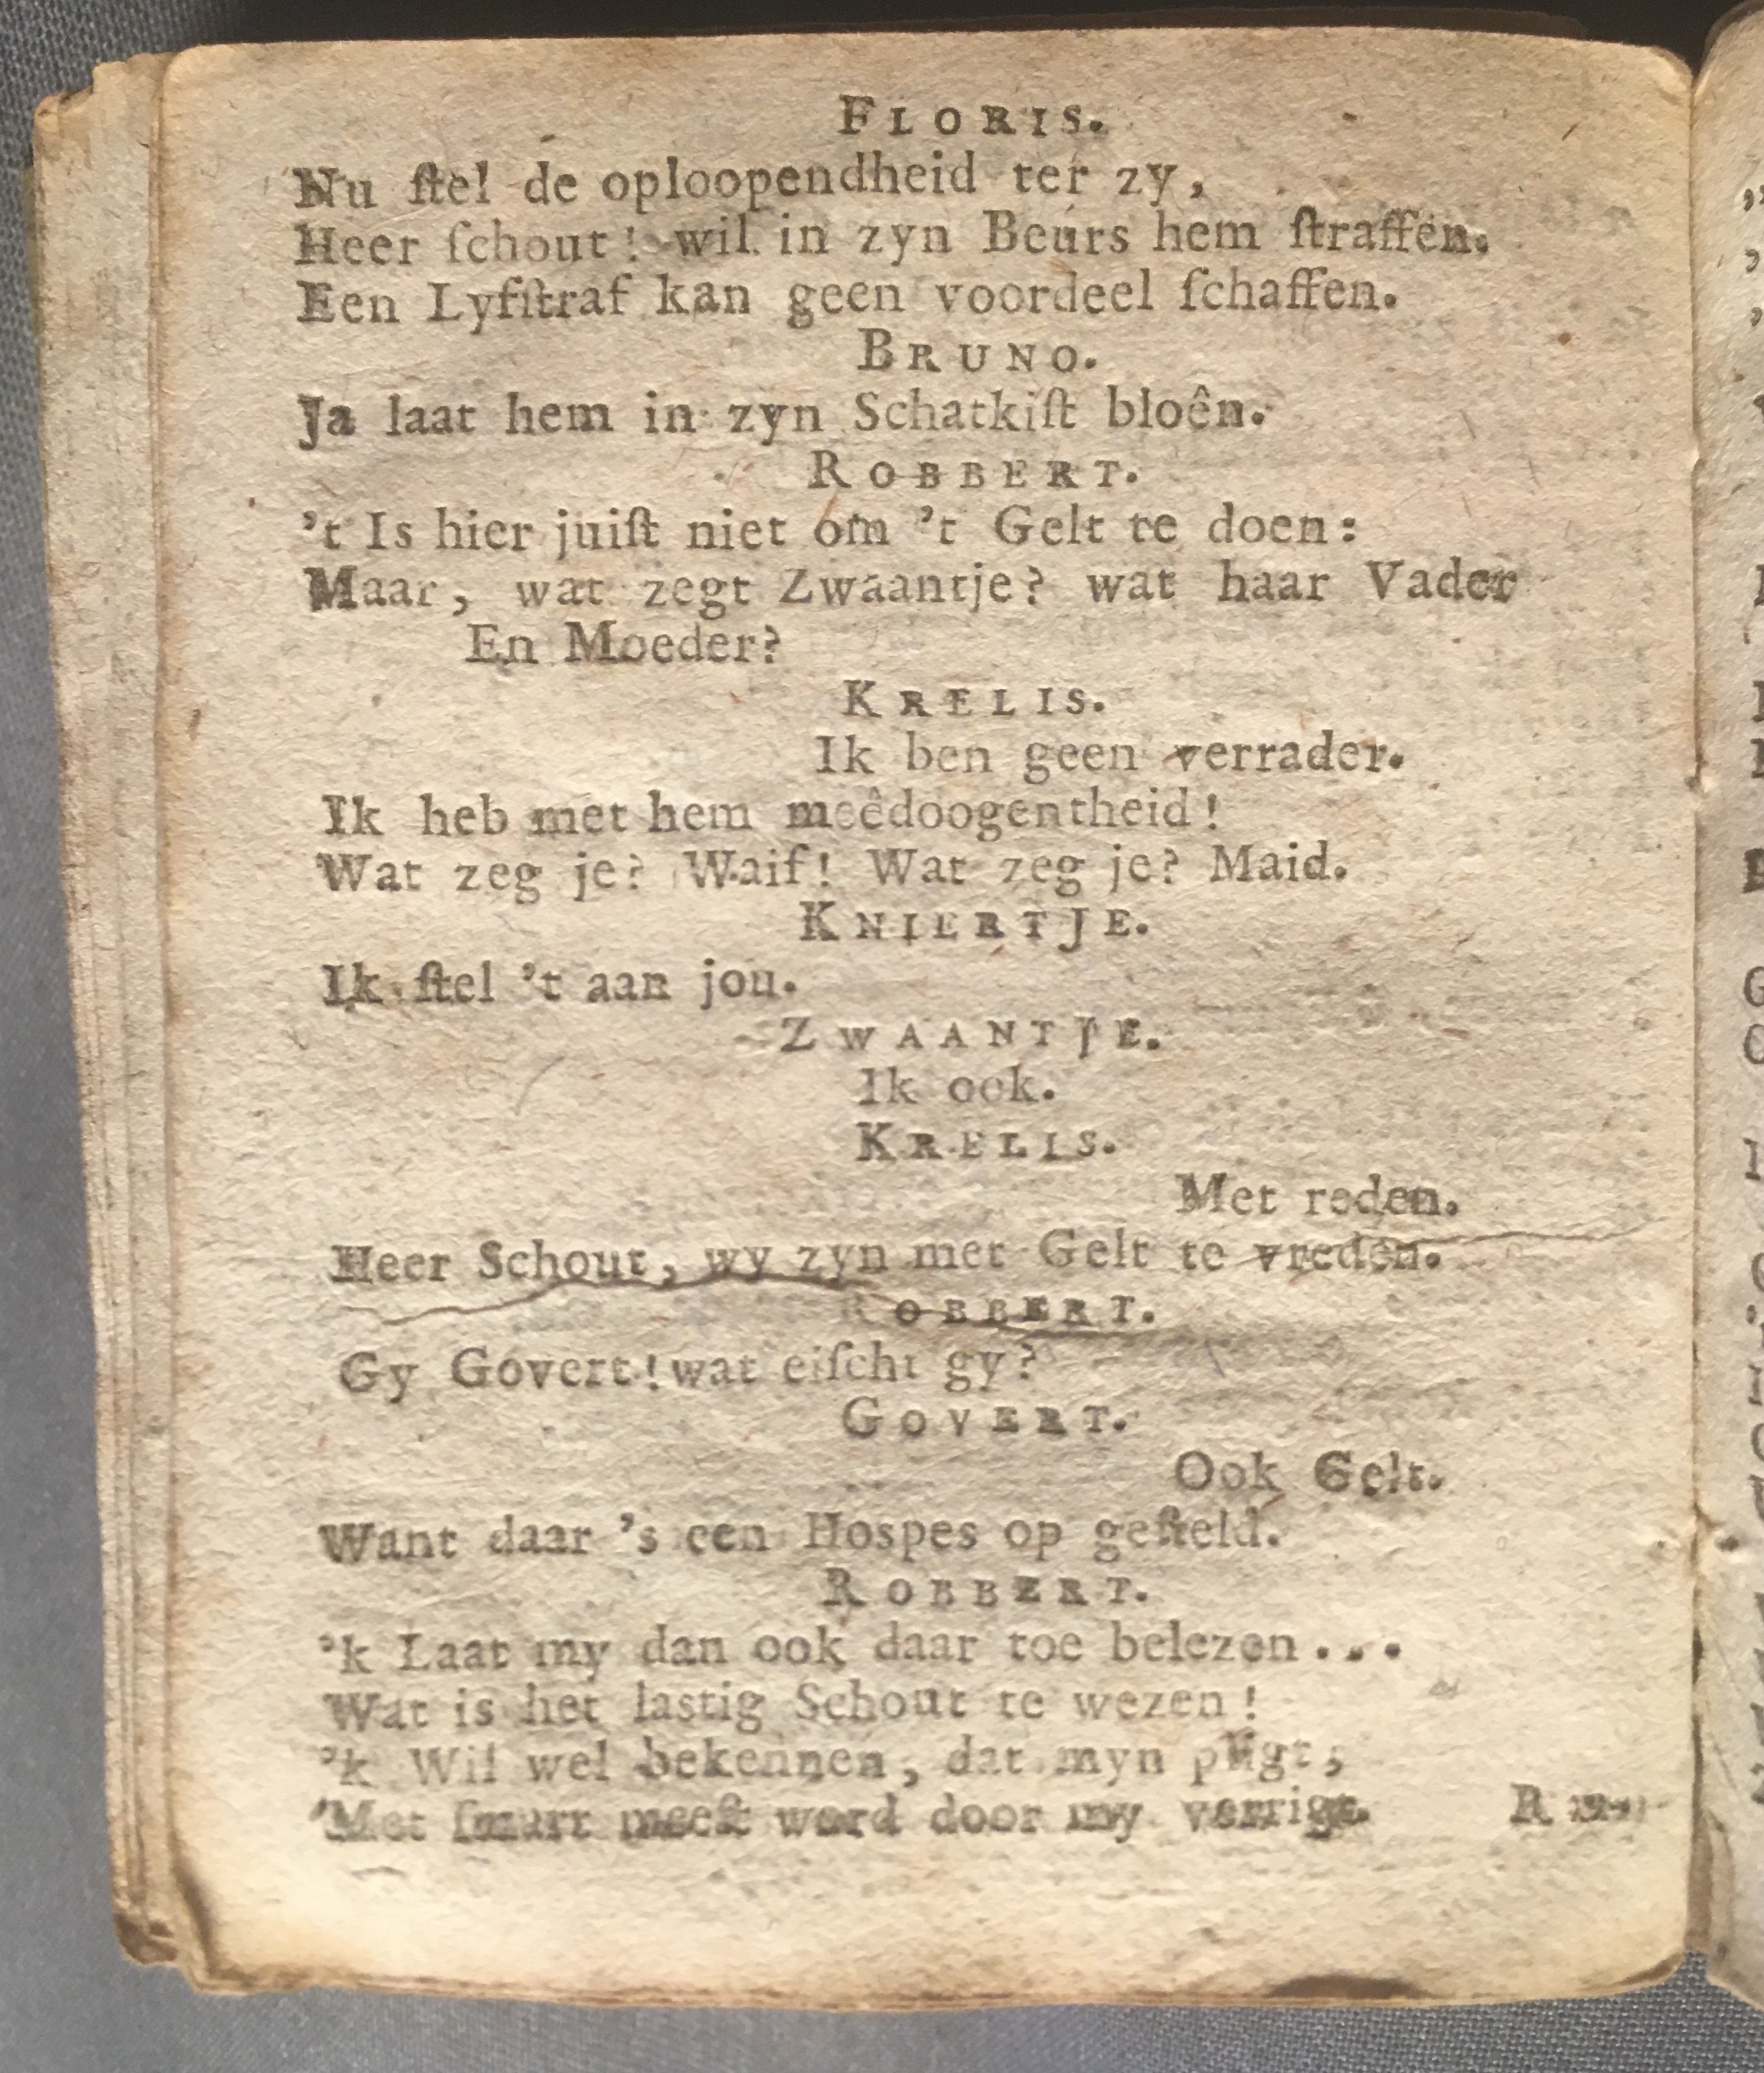 FLORIS.
Nu ſtel de oploopendheid ter zy,
Heer ſchout! wil in zyn Beurs hem ſtraffen.
Een Lyfſtraf kan geen voordeel ſchaffen.
BRUNO.
Ja laat hem in zyn Schatkiſt bloên.
ROBBERT.
't Is hier juiſt niet om 't Gelt te doen:
Maar, wat zegt Zwaantje? wat haar Vader
En Moeder?
KRELIS.
Ik ben geen verrader.
Ik heb met hem meêdoogentheid!
Wat zeg je? Waif! Wat zeg je? Maid.
KNIERTJE.
Ik ſtel 't aan jou.
ZWAANTJE.
Ik ook.
KRELIS.
Met reden.
Heer Schout, wy zyn met Gelt te vreden.
ROBBERT.
Gy Govert! wat eiſcht gy?
GOVERT.
Ook Gelt.
Want daar 's een Hospes op geſteld.
ROBBERT.
'k Laat my dan ook daar toe belezen...
Wat is het lastig Schout te wezen!
'k Wil wel bekennen, dat myn pligt,
Met ſmart meeſt word door my verrigt.